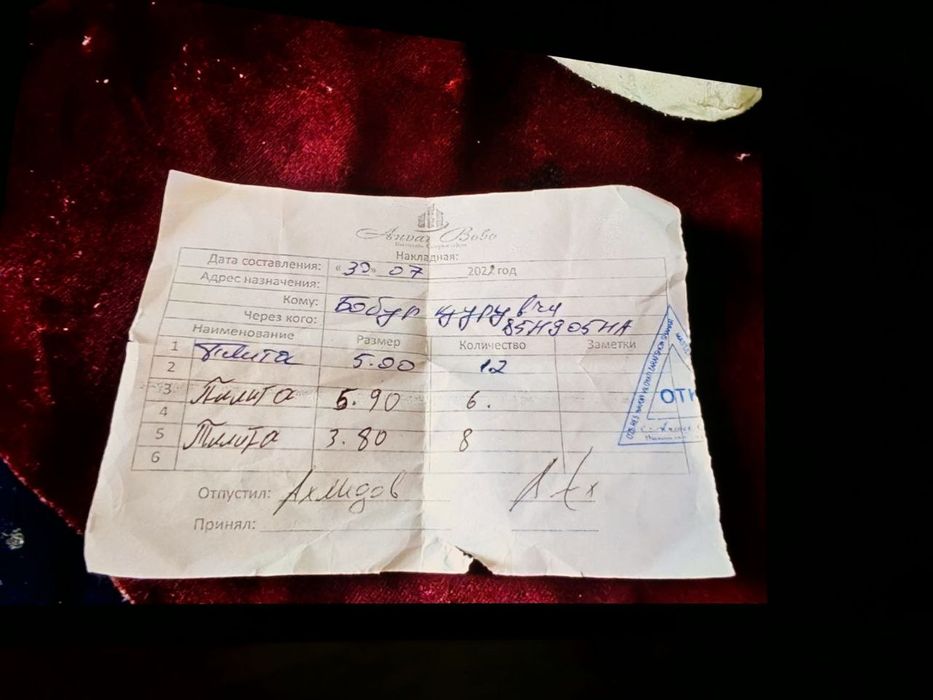 Anvar Bobo
Накладная:
Дата составления: «30» 07 2021 год
Адрес назначения:
Кому: Бобур қурувчи
Через кого: 85H905HA
Наименование Размер Количество Заметки
1 Плита 5.90 12
2
3 Плита 5.90 6.
4
5 Плита 3.80 8
6
Отпустил: Ахмедов
Принял:
ОТК